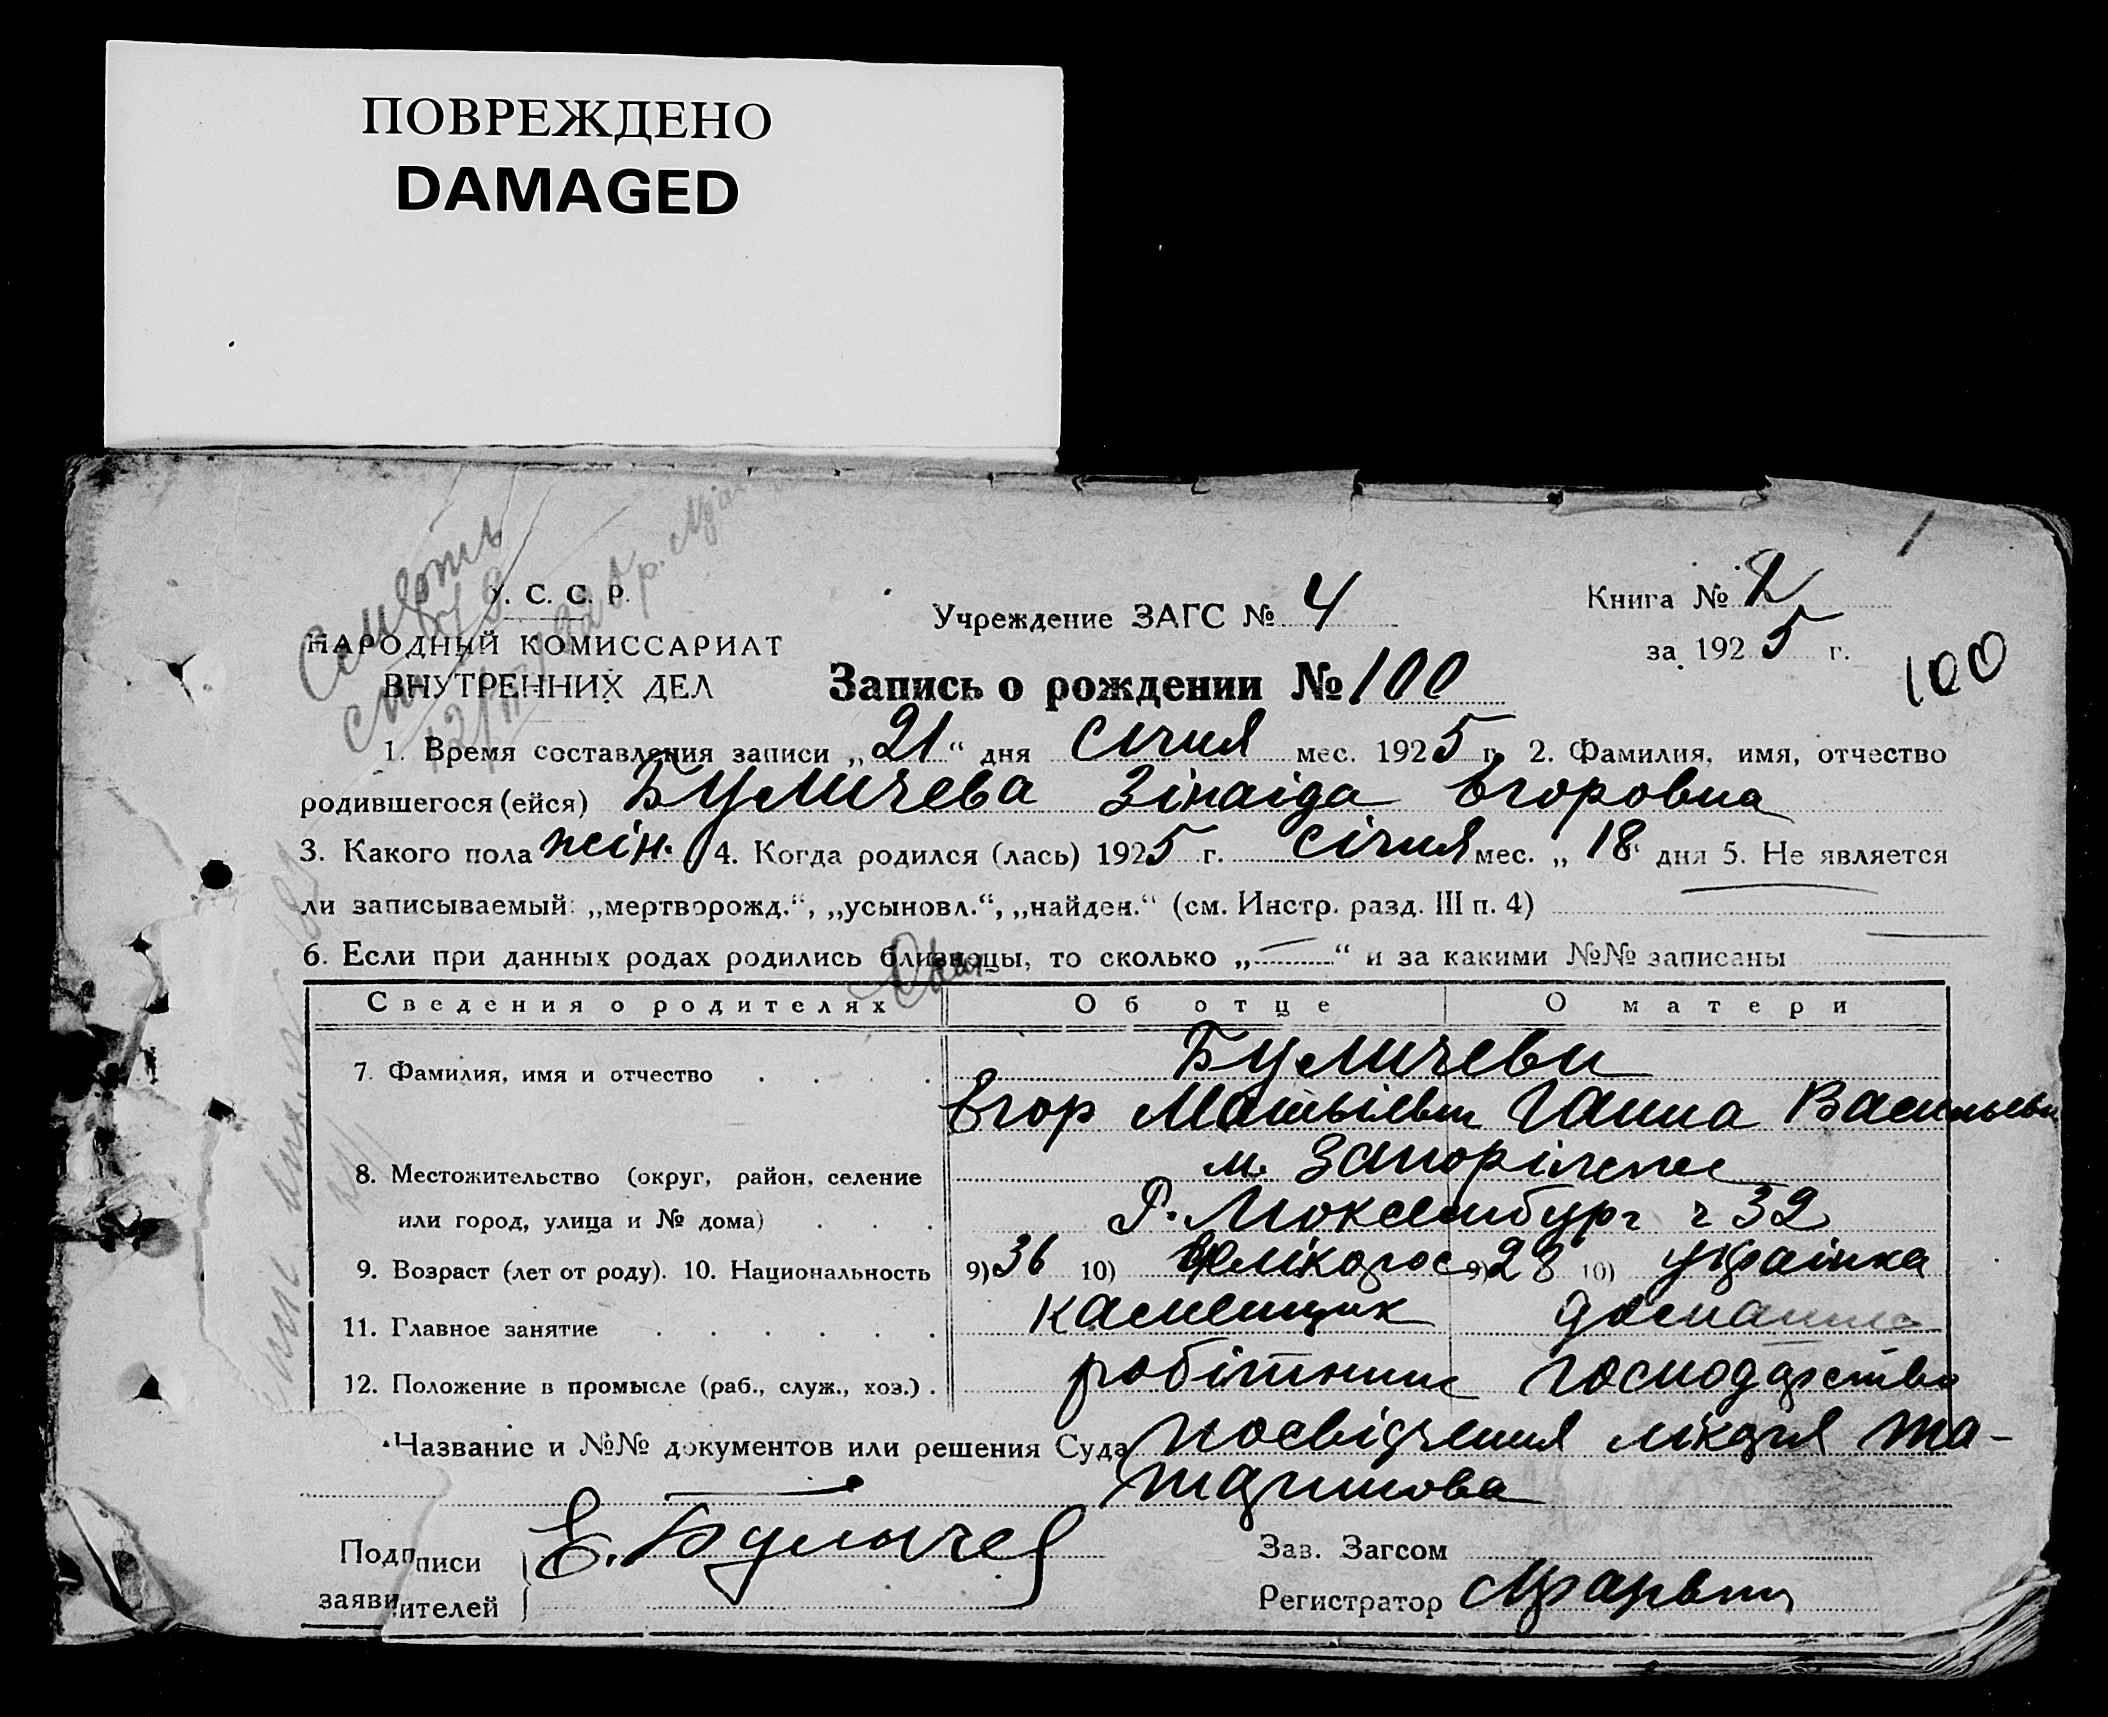 ПОВРЕЖДЕНО
DAMAGED
У. С. С. Р.
НАРОДНЫЙ КОМИССАРИАТ
ВНУТРЕННИХ ДЕЛ
Учреждение ЗАГС № 4
Книга № 2
за 1925 г.
100
Запись о рождении № 100
1. Время составления записи „21“ дня січня мес. 1925 г. 2. Фамилия, имя, отчество
родившегося (ейся) Буличева Зінаіда Єгоровна
3. Какого пола жін. 4. Когда родился (лась) 1925 г. січня мес. „18“ дня 5. Не является
ли записываемый: „мертворожд.“, „усыновл.“, „найден.“ (см. Инстр. разд. III п. 4)
6. Если при данных родах родились близнецы, то сколько „—“ и за какими №№ записаны
Сведения о родителях Об отце О матери
7. Фамилия, имя и отчество . . . . Буличеви
Єгор Матвієвич Ганна Васильевн
8. Местожительство (округ, район, селение м. Запоріжжє
или город, улица и № дома) . . . Р. Люксембург ч 32
9. Возраст (лет от роду). 10. Национальность 9) 36 10) Велікорос 9) 28 10) українка
11. Главное занятие . . . . . . каменщик домашнє
12. Положение в промысле (раб., служ., хоз.) . робітник господарство
Название и №№ документов или решения Суда посвідчення лікаря
Подписи
заявителей
Е. Булычев
Зав. Загсом
Регистратор